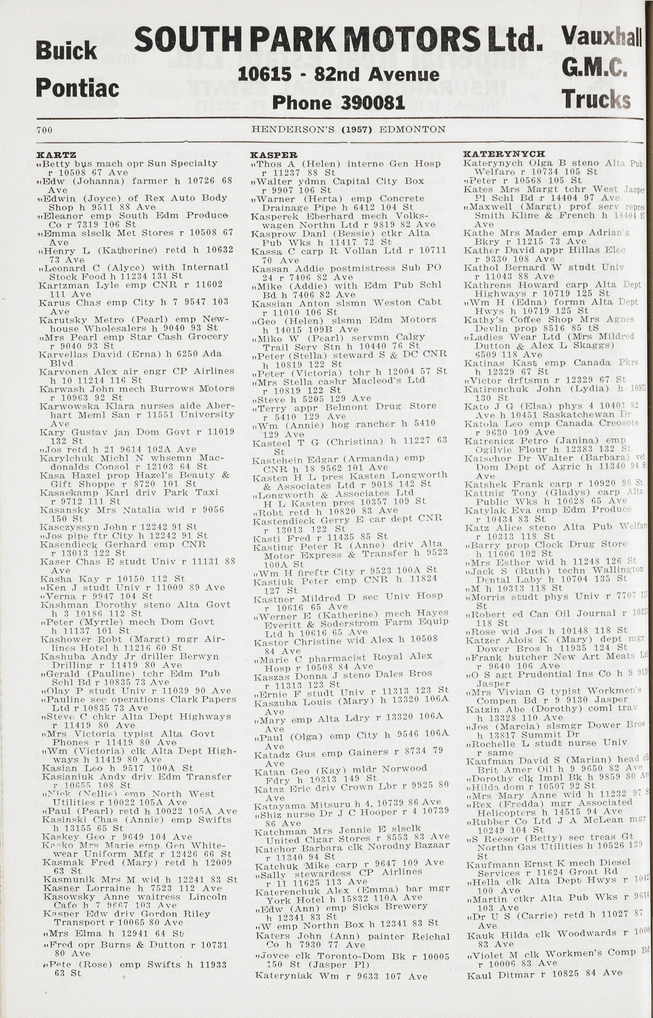 Buick
Pontiac
SOUTH PARK MOTORS Ltd.
10615 - 82nd Avenue
Phone 390081
Vauxhall
G.M.C.
Trucks
700
HENDERSON'S (1957) EDMONTON
KARTZ
„Betty bus mach opr Sun Specialty
r 10508 67 Ave
„Edw (Johanna) farmer h 10726 68
Ave
„Edwin (Joyce) of Rex Auto Body
Shop h 9511 88 Ave
„Eleanor emp South Edm Produce
Co r 7319 106 St
„Emma slsclk Met Stores r 10508 67
Ave
„Henry L (Katherine) retd h 10632
73 Ave
„Leonard C (Alyce) with Internatl
Stock Food h 11234 131 St
Kartzman Lyle emp CNR r 11602
111 Ave
Karus Chas emp City h 7 9547 103
Ave
Karutsky Metro (Pearl) emp New-
house Wholesalers h 9040 93 St
„Mrs Pearl emp Star Cash Grocery
r 9040 93 St
Karvellas David (Erna) h 6250 Ada
Blvd
Karvonen Alex air engr CP Airlines
h 10 11214 116 St
Karwash John mech Burrows Motors
r 10963 92 St
Karwowska Klara nurses aide Aber-
hart Meml San r 11551 University
Ave
Kary Gustav jan Dom Govt r 11019
132 St
„Jos retd h 21 9614 102A Ave
Karylchuk Michl N whsemn Mac-
donalds Consol r 12103 64 St
Kasa Hazel prop Hazel's Beauty &
Gift Shoppe r 8720 101 St
Kasaekamp Karl driv Park Taxi
r 9712 111 St
Kasansky Mrs Natalia wid r 9056
150 St
Kasczysyn John r 12242 91 St
„Jos pipe ftr City h 12242 91 St
Kasendieck Gerhard emp CNR
r 13013 122 St
Kaser Chas E studt Univ r 11131 88
Ave
Kasha Kay r 10150 112 St
„Ken J studt Univ r 11009 89 Ave
„Verna r 9947 104 St
Kashman Dorothy steno Alta Govt
h 3 10186 112 St
„Peter (Myrtle) mech Dom Govt
h 11137 101 St
Kashower Robt (Margt) mgr Air-
lines Hotel h 11216 60 St
Kashuba Andy Jr driller Berwyn
Drilling r 11419 80 Ave
„Gerald (Pauline) tchr Edm Pub
Schl Bd r 10835 73 Ave
„Olay P studt Univ r 11039 90 Ave
„Pauline sec operations Clark Papers
Ltd r 10835 73 Ave
„Steve C chkr Alta Dept Highways
r 11419 80 Ave
„Mrs Victoria typist Alta Govt
Phones r 11419 80 Ave
„Wm (Victoria) clk Alta Dept High-
ways h 11419 80 Ave
Kasian Leo h 9517 100A St
Kasianiuk Andy driv Edm Transfer
r 10655 108 St
„Nick (Nellie) emp North West
Utilities r 10022 105A Ave
„Paul (Pearl) retd h 10022 105A Ave
Kasinski Chas (Annie) emp Swifts
h 13155 65 St
Kaskey Geo r 9649 104 Ave
Mrs Marie emp Gen White-
wear Uniform Mfg r 12426 66 St
Kasmak Fred (Mary) retd h 12009
63 St
Kasmunik Mrs M wid h 12241 83 St
Kasner Lorraine h 7523 112 Ave
Kasowsky Anne waitress Lincoln
Cafe h 7 9667 103 Ave
Kasper Edw driv Gordon Riley
Transport r 10065 80 Ave
„Mrs Elma h 12941 64 St
„Fred opr Burns & Dutton r 10731
80 Ave
„Pete (Rose) emp Swifts h 11933
63 St
KASPER
„Thos A (Helen) interne Gen Hosp
r 11237 88 St
„Walter ydmn Capital City Box
r 9907 106 St
„Warner (Herta) emp Concrete
Drainage Pipe h 6412 104 St
Kasperek Eberhard mech Volks-
wagen Northn Ltd r 9819 82 Ave
Kasprow Danl (Bessie) ctkr Alta
Pub Wks h 11417 72 St
Kassa C carp R Vollan Ltd r 10711
70 Ave
Kassan Addie postmistress Sub PO
24 r 7406 82 Ave
„Mike (Addie) with Edm Pub Schl
Bd h 7406 82 Ave
Kassian Anton slsmn Weston Cabt
r 11010 106 St
„Geo (Helen) slsmn Edm Motors
h 14015 109B Ave
„Mike W (Pearl) servmn Calgy
Trail Serv Stn h 10440 76 St
„Peter (Stella) steward S & DC CNR
h 10819 122 St
„Peter (Victoria) tchr h 12004 57 St
„Mrs Stella cashr Macleod's Ltd
r 10819 122 St
„Steve h 5205 129 Ave
„Terry appr Belmont Drug Store
r 5410 129 Ave
„Wm (Annie) hog rancher h 5410
129 Ave
Kasteel T G (Christina) h 11227 63
St
Kastehein Edgar (Armanda) emp
CNR h 18 9562 101 Ave
Kasten H L pres Kasten Longworth
& Associates Ltd r 9018 142 St
„Longworth & Associates Ltd
H L Kasten pres 10357 109 St
„Robt retd h 10820 83 Ave
Kastendieck Gerry E car dept CNR
r 13013 122 St
Kasti Fred r 11435 85 St
Kasting Peter R (Anne) driv Alta
Motor Express & Transfer h 9523
100A St
„Wm H fireftr City r 9523 100A St
Kastiuk Peter emp CNR h 11824
127 St
Kastner Mildred D sec Univ Hosp
r 10616 65 Ave
„Werner E (Katherine) mech Hayes
Everitt & Soderstrom Farm Equip
Ltd h 10616 65 Ave
Kastor Christine wid Alex h 10508
84 Ave
„Marie C pharmacist Royal Alex
Hosp r 10508 84 Ave
Kaszas Donna J steno Dales Bros
r 11313 123 St
„Ernie F studt Univ r 11313 123 St
Kaszuba Louis (Mary) h 13320 106A
Ave
„Mary emp Alta Ldry r 13320 106A
Ave
„Paul (Olga) emp City h 9546 106A
Ave
Katadz Gus emp Gainers r 8734 79
Ave
Katan Geo (Kay) mldr Norwood
Fdry h 10313 149 St
Kataz Eric driv Crown Lbr r 9925 80
Ave
Katayama Mitsuru h 4, 10739 86 Ave
„Shiz nurse Dr J C Hooper r 4 10739
86 Ave
Katchman Mrs Jennie E slsclk
United Cigar Stores r 8553 83 Ave
Katchor Barbara clk Norodny Bazaar
r 11340 94 St
Katchuk Mike carp r 9647 109 Ave
„Sally stewardess CP Airlines
r 11 11625 113 Ave
Katerenchuk Alex (Emma) bar mgr
York Hotel h 15832 110A Ave
„Edw (Ann) emp Sicks Brewery
h 12341 83 St
„W emp Northn Box h 12341 83 St
Katers John (Ann) painter Reichal
Co h 7930 77 Ave
„Joyce clk Toronto-Dom Bk r 10005
150 St (Jasper Pl)
Kateryniak Wm r 9633 107 Ave
KATERYNYCH
Katerynych Olga B steno Alta Pub
Welfare r 10734 105 St
„Peter r 10568 105 St
Kates Mrs Margt tchr West Jasper
Pl Schl Bd r 14404 97 Ave
„Maxwell (Margt) prof serv repres
Smith Kline & French h 14404
Ave
Kathe Mrs Mader emp Adrian's
Bkry r 11215 73 Ave
Kather David appr Hillas Elec
r 9330 108 Ave
Kathol Bernard W studt Univ
r 11043 88 Ave
Kathrens Howard carp Alta Dept
Highways r 10719 125 St
„Wm H (Edna) formn Alta Dept
Hwys h 10719 125 St
Kathy's Coffee Shop Mrs Agnes
Devlin prop 8516 85 tS
„Ladies Wear Ltd (Mrs Mildred
Dutton & Alex L Skaggs)
6509 118 Ave
Katinas Kast emp Canada Pkrs
h 12329 67 St
„Victor drftsmn r 12329 67 St
Katirenchuk John (Lydia) h
130 St
Kato J G (Elsa) phys 4 10401 82
Ave h 10451 Saskatchewan Dr
Katola Leo emp Canada Creosote
r 9630 109 Ave
Katrenicz Petro (Janina) emp
Ogilvie Flour h 12383 132 St
Katschor Dr Walter (Barbara) vet
Dom Dept of Agric h 11340 94
Ave
Katshek Frank carp r 10920 98 St
Kattnig Tony (Gladys) carp Alta
Public Wks h 10628 65 Ave
Katylak Eva emp Edm Produce
r 10434 83 St
Katz Alice steno Alta Pub Welfare
r 10313 118 St
„Barry prop Clock Drug Store
h 11606 102 St
„Mrs Esther wid h 11248 126 St
„Jack S (Ruth) techn Wallington
Dental Laby h 10704 135 St
„M h 10313 118 St
„Morris studt phys Univ r 7707
St
„Robert ed Can Oil Journal r
118 St
„Rose wid Jos h 10148 118 St
Katzer Alois K (Mary) dept mgr
Dower Bros h 11935 124 St
„Frank butcher New Art Meats
r 9640 106 Ave
„O S agt Prudential Ins Co h 9
Jasper
„Mrs Vivian G typist Workmen's
Compen Bd r 9 9130 Jasper
Katzin Abe (Dorothy) coml trav
h 13328 110 Ave
„Jos (Marcia) slsmgr Dower Bros
h 13817 Summit Dr
„Rochelle L studt nurse Univ
r same
Kaufman David S (Marian) head
Brit Amer Oil h 9 9650 82 Ave
„Dorothy clk Impl Bk h 9859 80 Ave
„Hilda dom r 10507 92 St
„Mrs Mary Anne wid h 11232 97
„Rex (Fredda) mgr Associated
Helicopters h 14515 94 Ave
„Rubber Co Ltd J A McLean mgr
10249 104 St
„S Reesor (Betty) sec treas Gt
Northn Gas Utilities h 10526 139
St
Kaufmann Ernst K mech Diesel
Services r 11624 Groat Rd
„Hella clk Alta Dept Hwys r
100 Ave
„Martin ctkr Alta Pub Wks r
103 Ave
„Dr U S (Carrie) retd h 11027 87
Ave
Kauk Hilda clk Woodwards r
83 Ave
„Violet M clk Workmen's Comp
r 10006 83 Ave
Kaul Ditmar r 10825 84 Ave